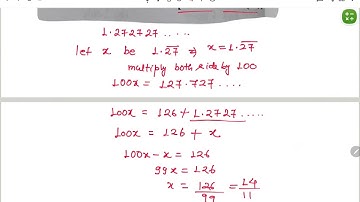 1.272727.....
let x be 1.2̅7̅ ⇒ x = 1.2̅7̅
multiply both side by 100
100x = 127.727....
100x = 126 + 1.2727.....
100x = 126 + x
100x - x = 126
99x = 126
x = 126/99 = 14/11